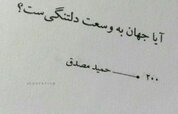 آیا جهان به وسعت دلتنگی ست؟
۲۰۰ حمید مصدق